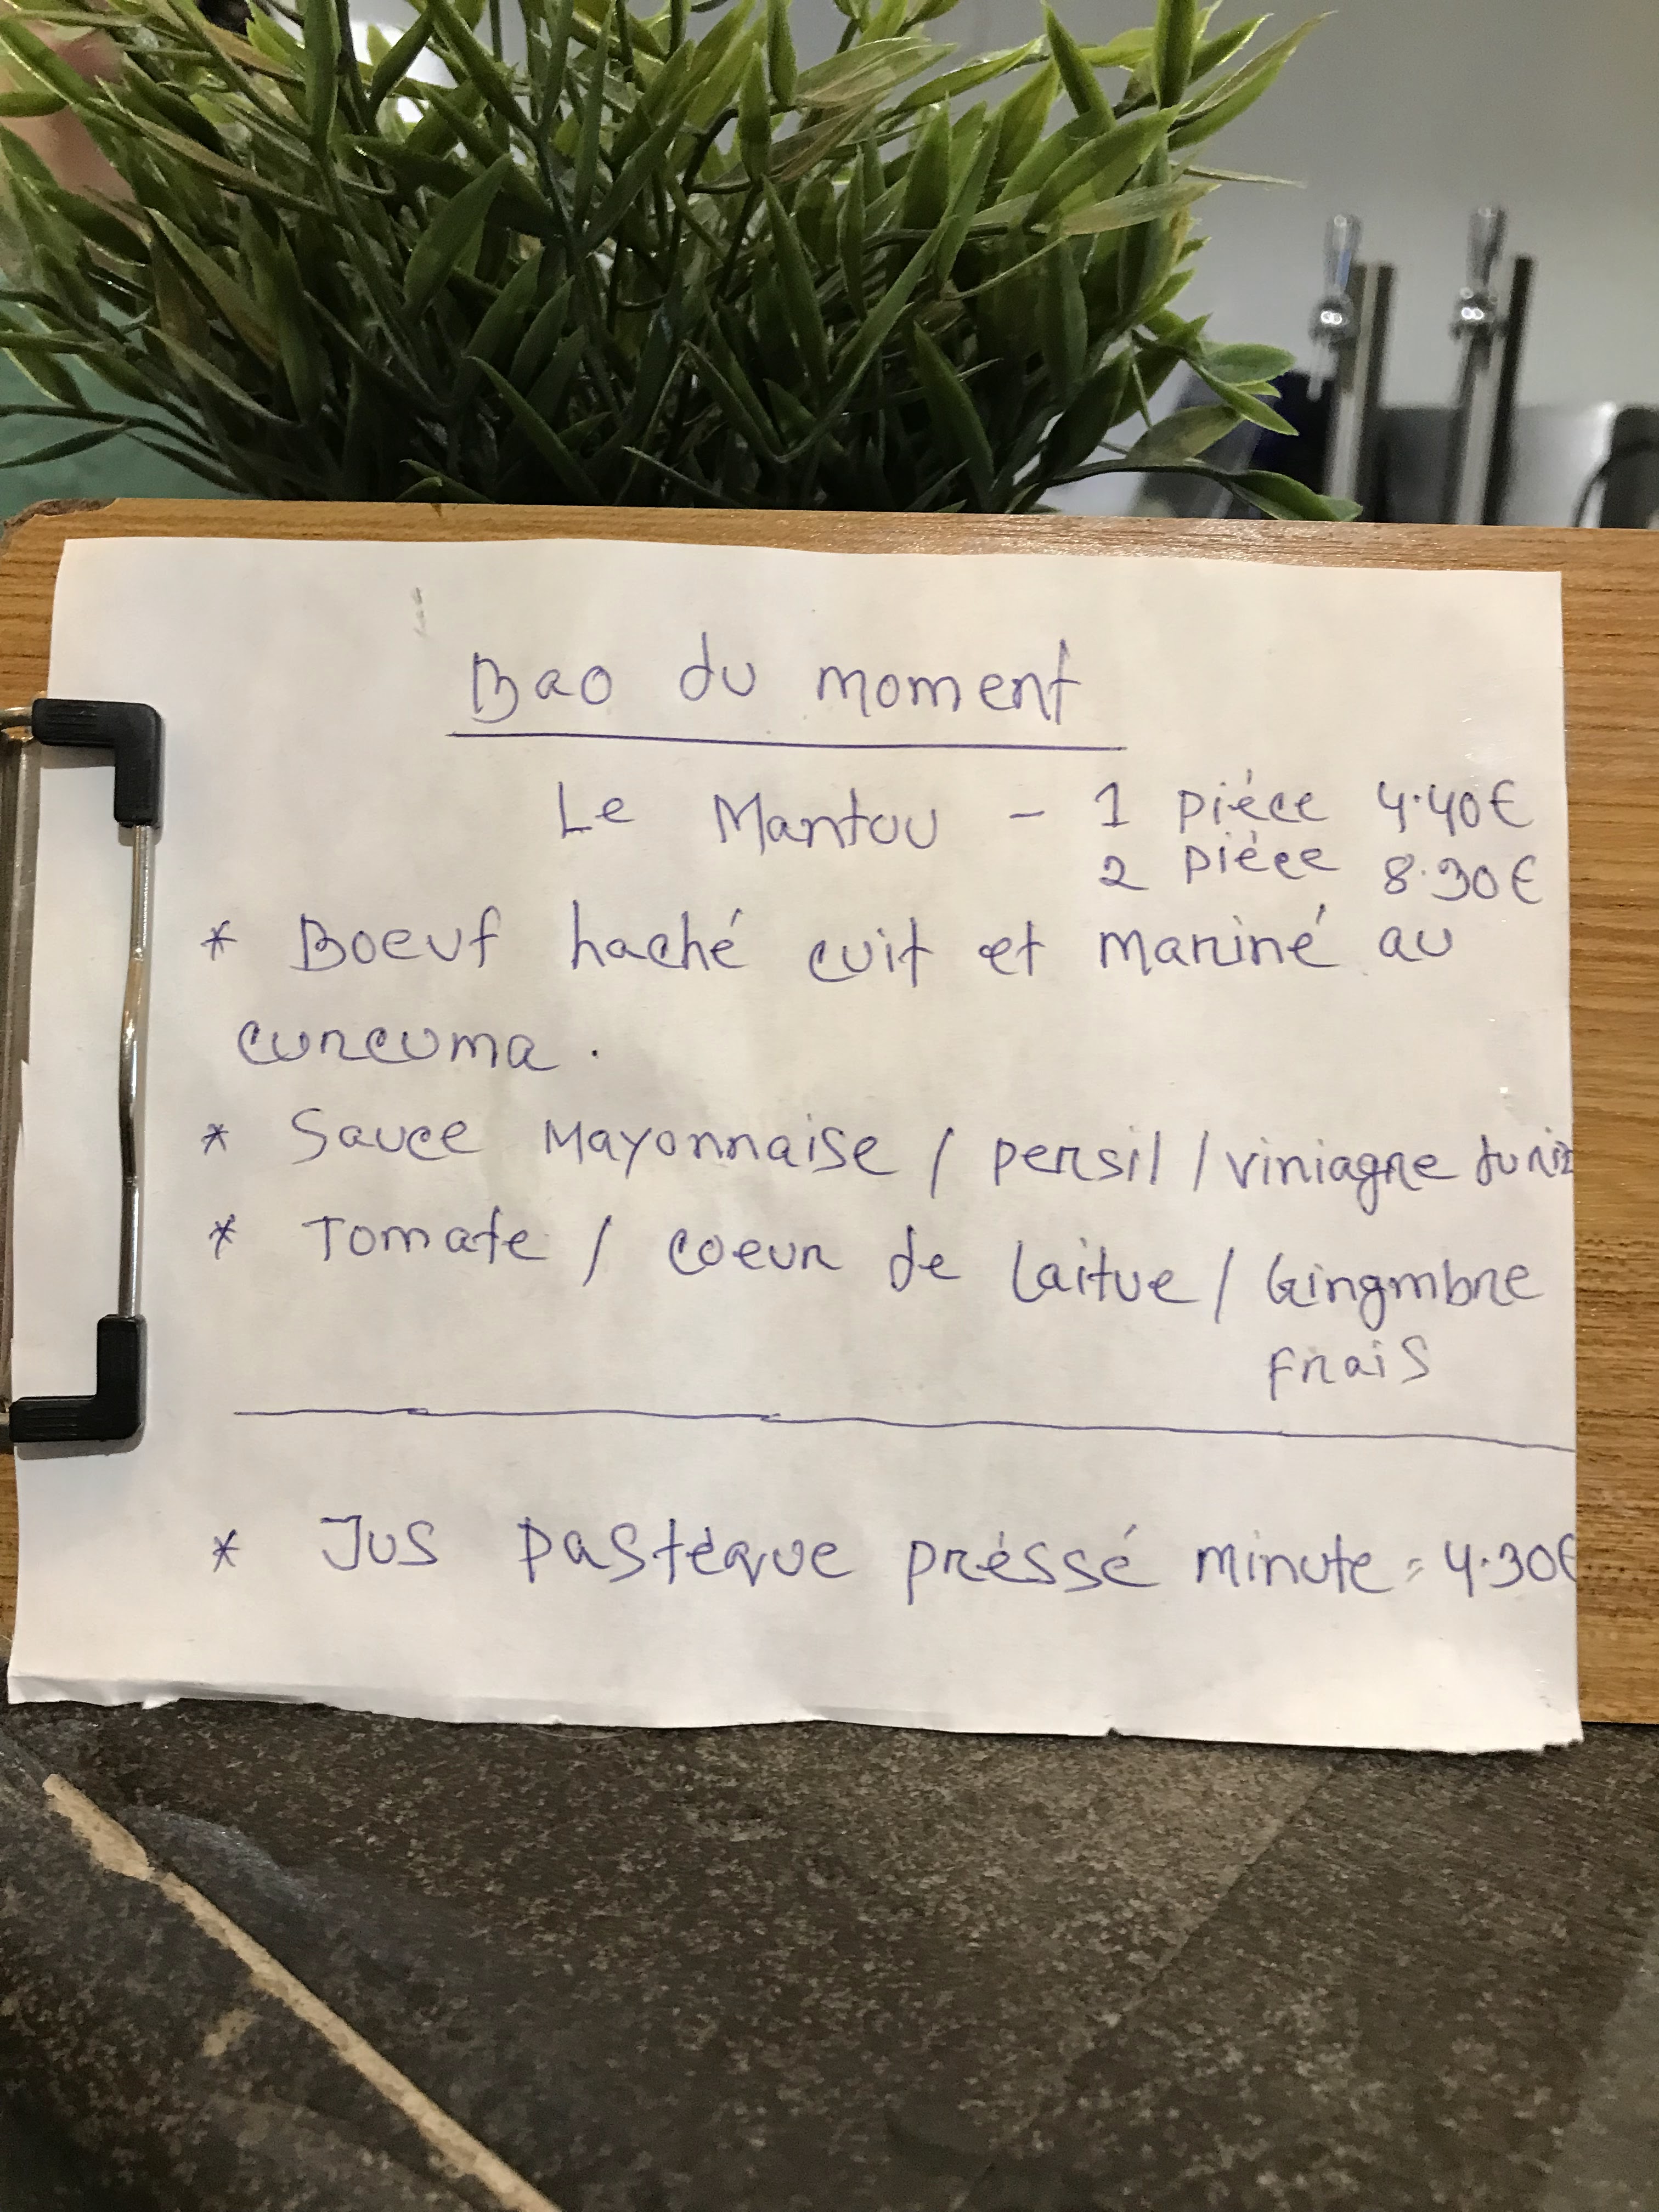 Bao du moment
Le Mantou - 1 pièce 4.40€
2 pièce 8.30€
* Boeuf haché cuit et mariné au
curcuma.
* Sauce Mayonnaise / persil / viniagre du riz
* Tomate / coeur de laitue / Gingmbre
frais
* Jus pastèque préssé minute = 4.30€